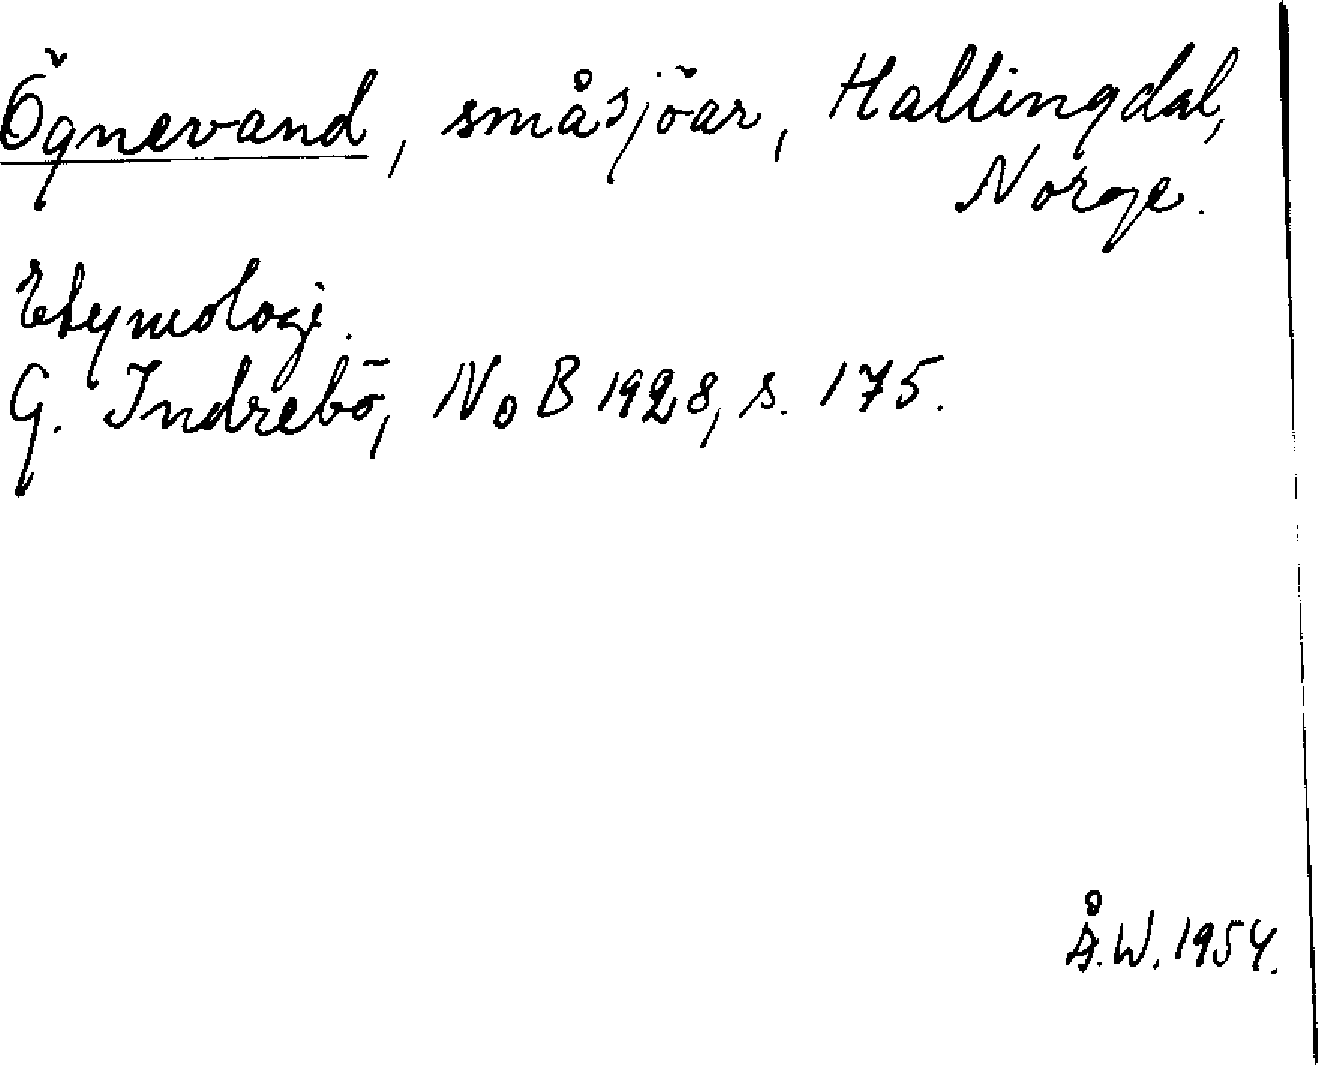 Ögnevand, småsjöar, Hallingdal,
Norge.
Etymologi.
G. Indrebö, NoB 1928, s. 175.
Å.W. 1954.